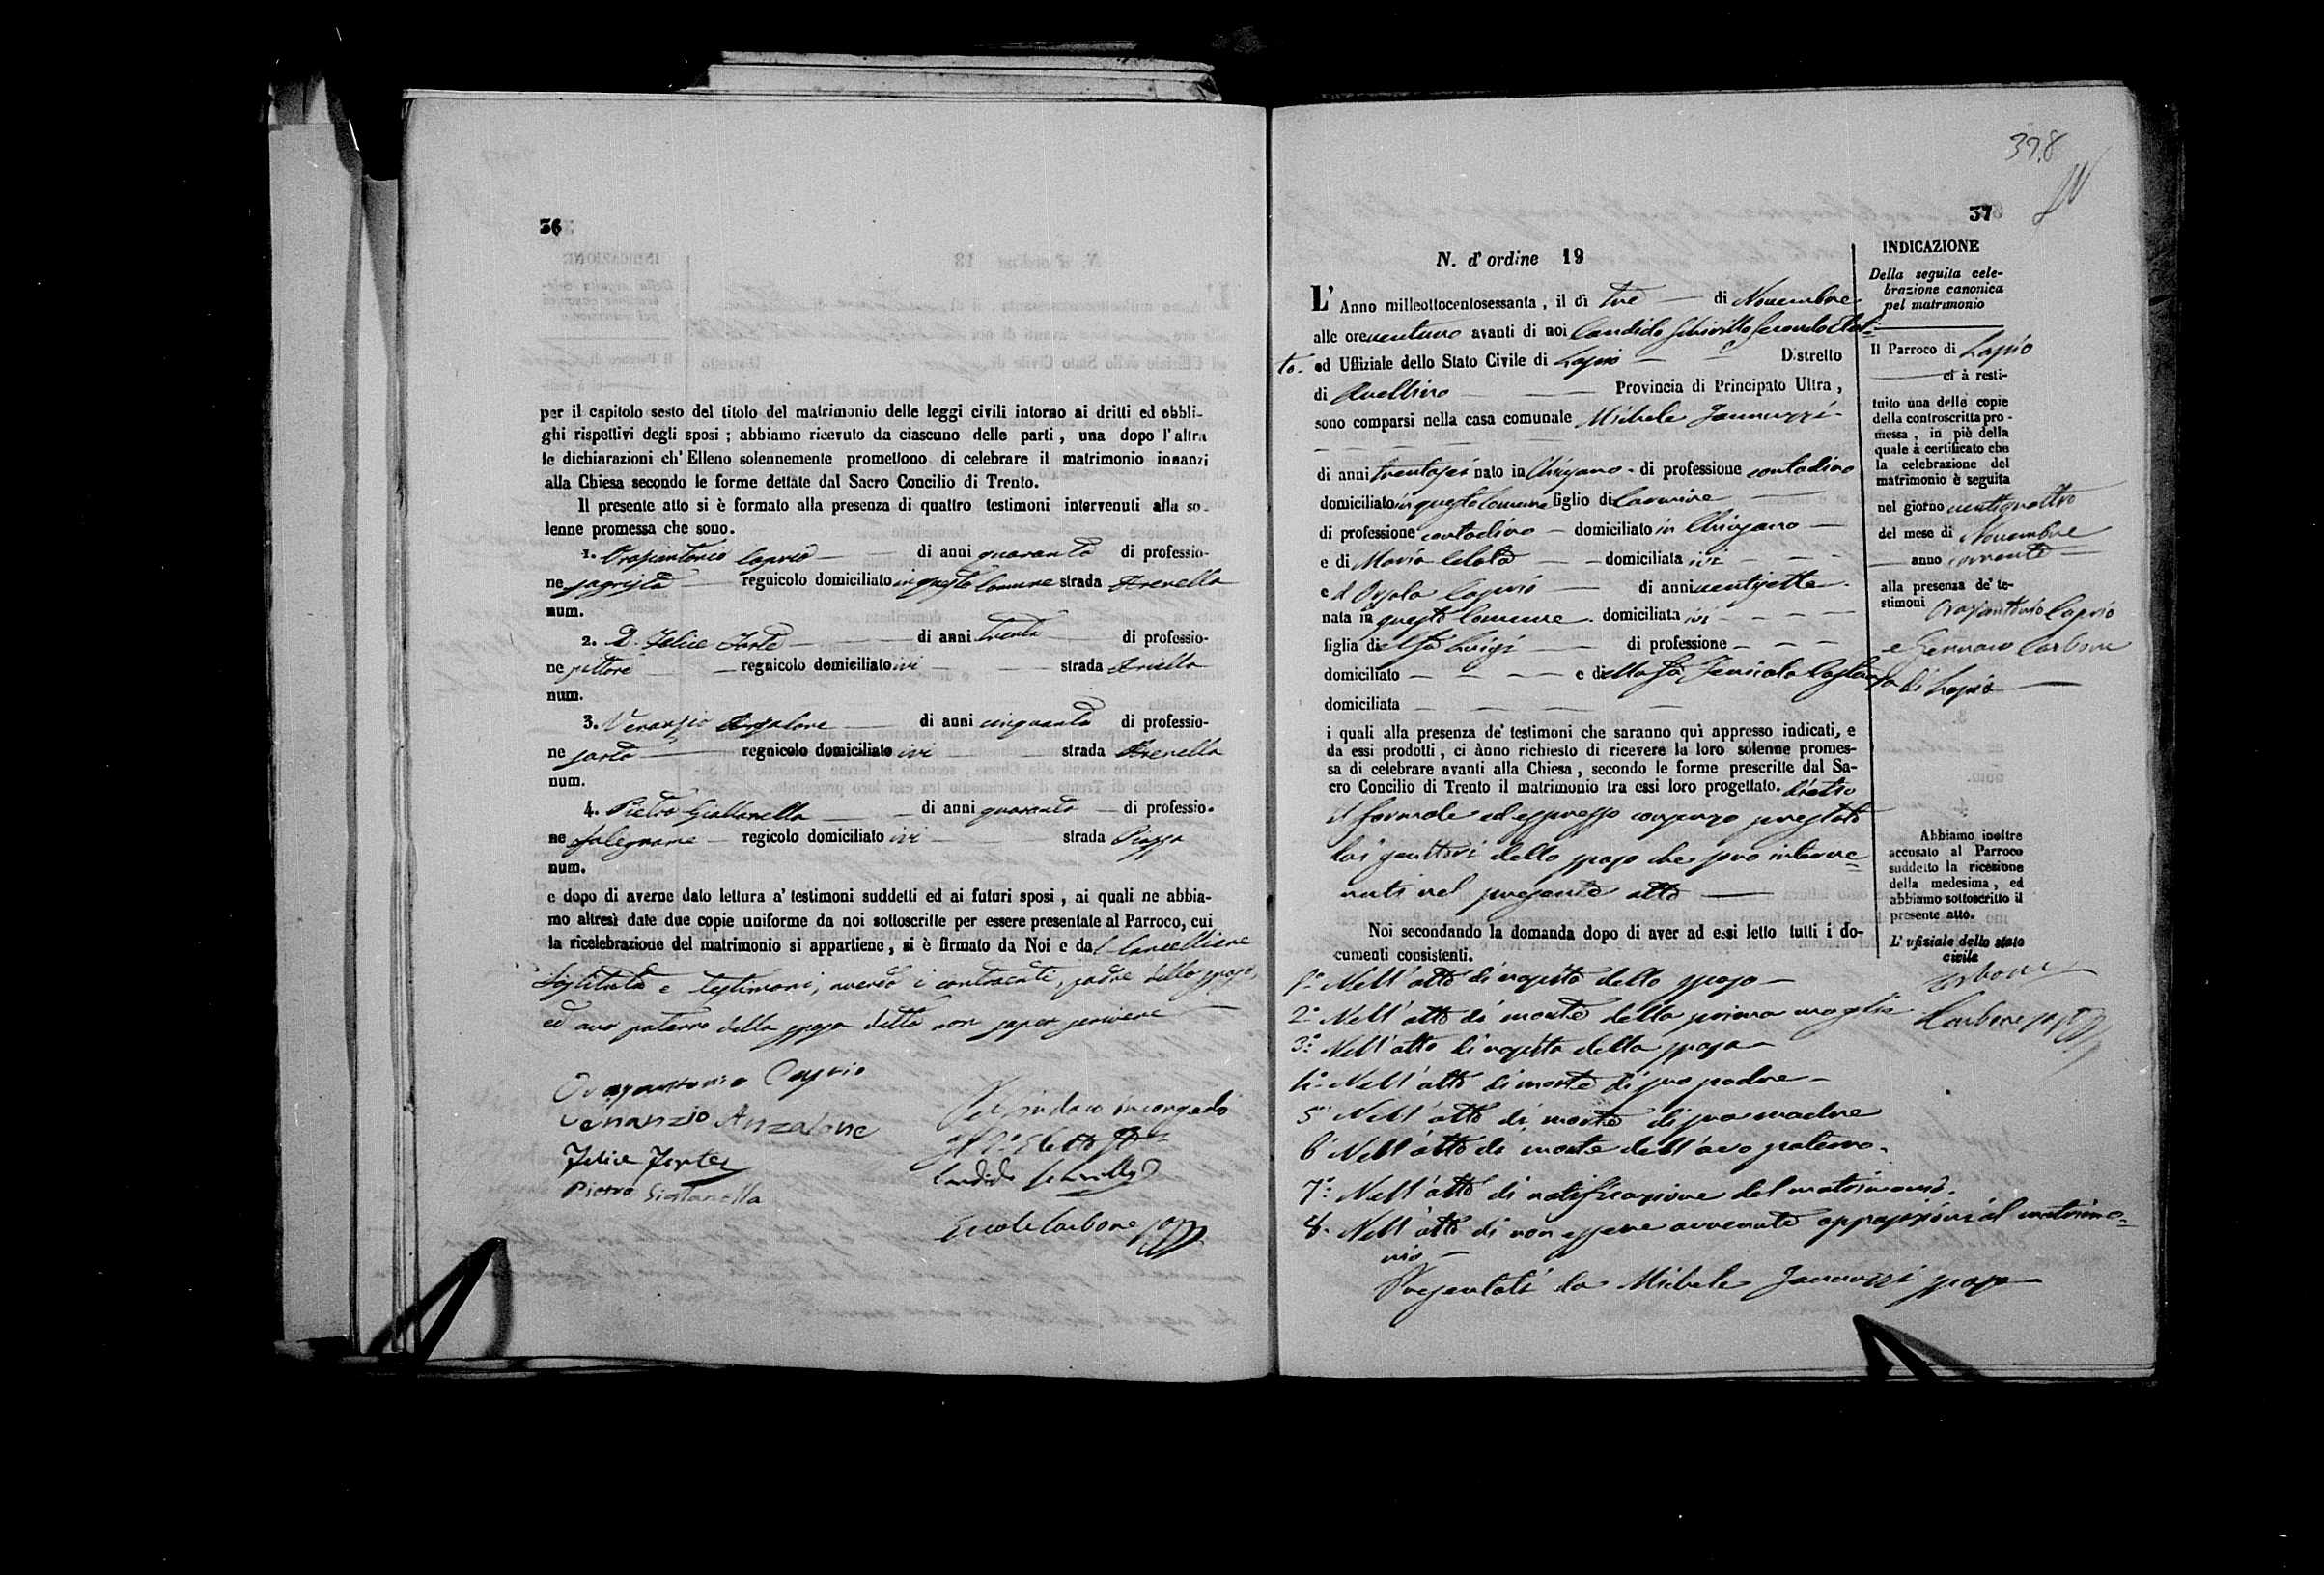 36
per il capitolo sesto del titolo del matrimonio delle leggi civili intorno ai dritti ed obbli-
ghi rispettivi degli sposi ; abbiamo ricevuto da ciascuno delle parti , una dopo l'altra
le dichiarazioni ch' Elleno solennemente promettono di celebrare il matrimonio innanzi
alla Chiesa secondo le forme dettate dal Sacro Concilio di Trento.
Il presente atto si è formato alla presenza di quattro testimoni intervenuti alla so-
lenne promessa che sono.
1. Orazantonio Caprio di anni quaranta di professio-
ne sagrista regnicolo domiciliato in questo Comune strada Arenella
num.
2. D. Felice Forte di anni trenta di professio-
ne pittore regnicolo domiciliato ivi strada Arenella
num.
3. Venanzio Anzalone di anni cinquanta di professio-
ne sarto regnicolo domiciliato ivi strada Arenella
num.
4. Pietro Giallanella di anni quaranta di professio-
ne falegname regicolo domiciliato ivi strada Piazza
num.
e dopo di averne dato lettura a' testimoni suddetti ed ai futuri sposi , ai quali ne abbia-
mo altresì date due copie uniforme da noi sottoscritte per essere presentate al Parroco, cui
la ricelebrazione del matrimonio si appartiene , si è firmato da Noi e dal Cancelliere
Sostituto e testimoni, avendo i contraenti, padre dello sposo,
ed avo paterno della sposa detto non saper scrivere
Orazantonio Caprio
Venanzio Anzalone
Felice Forte
Pietro Giallanella
Pel Sindaco incongedo
Candido Schirillo
Ercole Carbone
378
37
N. d' ordine 19
L' Anno milleottocentosessanta , il dì tre di Novembre
alle ore ventuno avanti di noi Candido Schirillo secondo Elet=
to ed Uffiziale dello Stato Civile di Lapio Distretto
di Avellino Provincia di Principato Ultra ,
sono comparsi nella casa comunale Michele Jannuzzi
di anni trentasei nato in Chiusano di professione contadino
domiciliato in questo Comune figlio di Carmine
di professione contadino domiciliato in Chiusano
e di Maria domiciliata ivi
e d Orsola Caprio di anni ventisette
nata in questo Comune domiciliata ivi
figlia del fu Luigi di professione
domiciliato e della fu
domiciliata
i quali alla presenza de' testimoni che saranno quì appresso indicati, e
da essi prodotti , ci ànno richiesto di ricevere la loro solenne promes-
sa di celebrare avanti alla Chiesa , secondo le forme prescritte dal Sa-
cro Concilio di Trento il matrimonio tra essi loro progettato. Dietro
il formale ed espresso consenso prestato
dai genitori dello sposo che sono interve=
nuti nel presente atto
Noi secondando la domanda dopo di aver ad essi letto tutti i do-
cumenti consistenti.
1° Nell' atto di nascita dello sposo
2° Nell' atto di morte della prima moglie
3° Nell' atto di nascita della sposa
4° Nell' atto di morte di suo padre
5° Nell' atto di morte di sua madre
6° Nell' atto di morte dell' avo paterno.
7° Nell' atto di notificazione del matrimonio.
8° Nell' atto di non essere avvenute opposizioni al matrimo=
nio
Presentati da Michele Jannuzzi sposo
INDICAZIONE
Della seguita cele-
brazione canonica
pel matrimonio
Il Parroco di Lapio
ci à resti-
tuito una delle copie
della controscritta pro-
messa , in piè della
quale à certificato che
la celebrazione del
matrimonio è seguita
nel giorno ventiquattro
del mese di Novembre
anno corrente
alla presenza de' te-
stimoni Orazantonio Caprio
e Gennaro Carbone
di Lapio
Abbiamo inoltre
accusato al Parroco
suddetto la ricezione
della medesima , ed
abbiamo sottoscritto il
presente atto.
L' ufiziale dello stato
civile
Carbone
Carbone